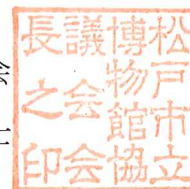 松戸市立
博物館協
議会会
長之印